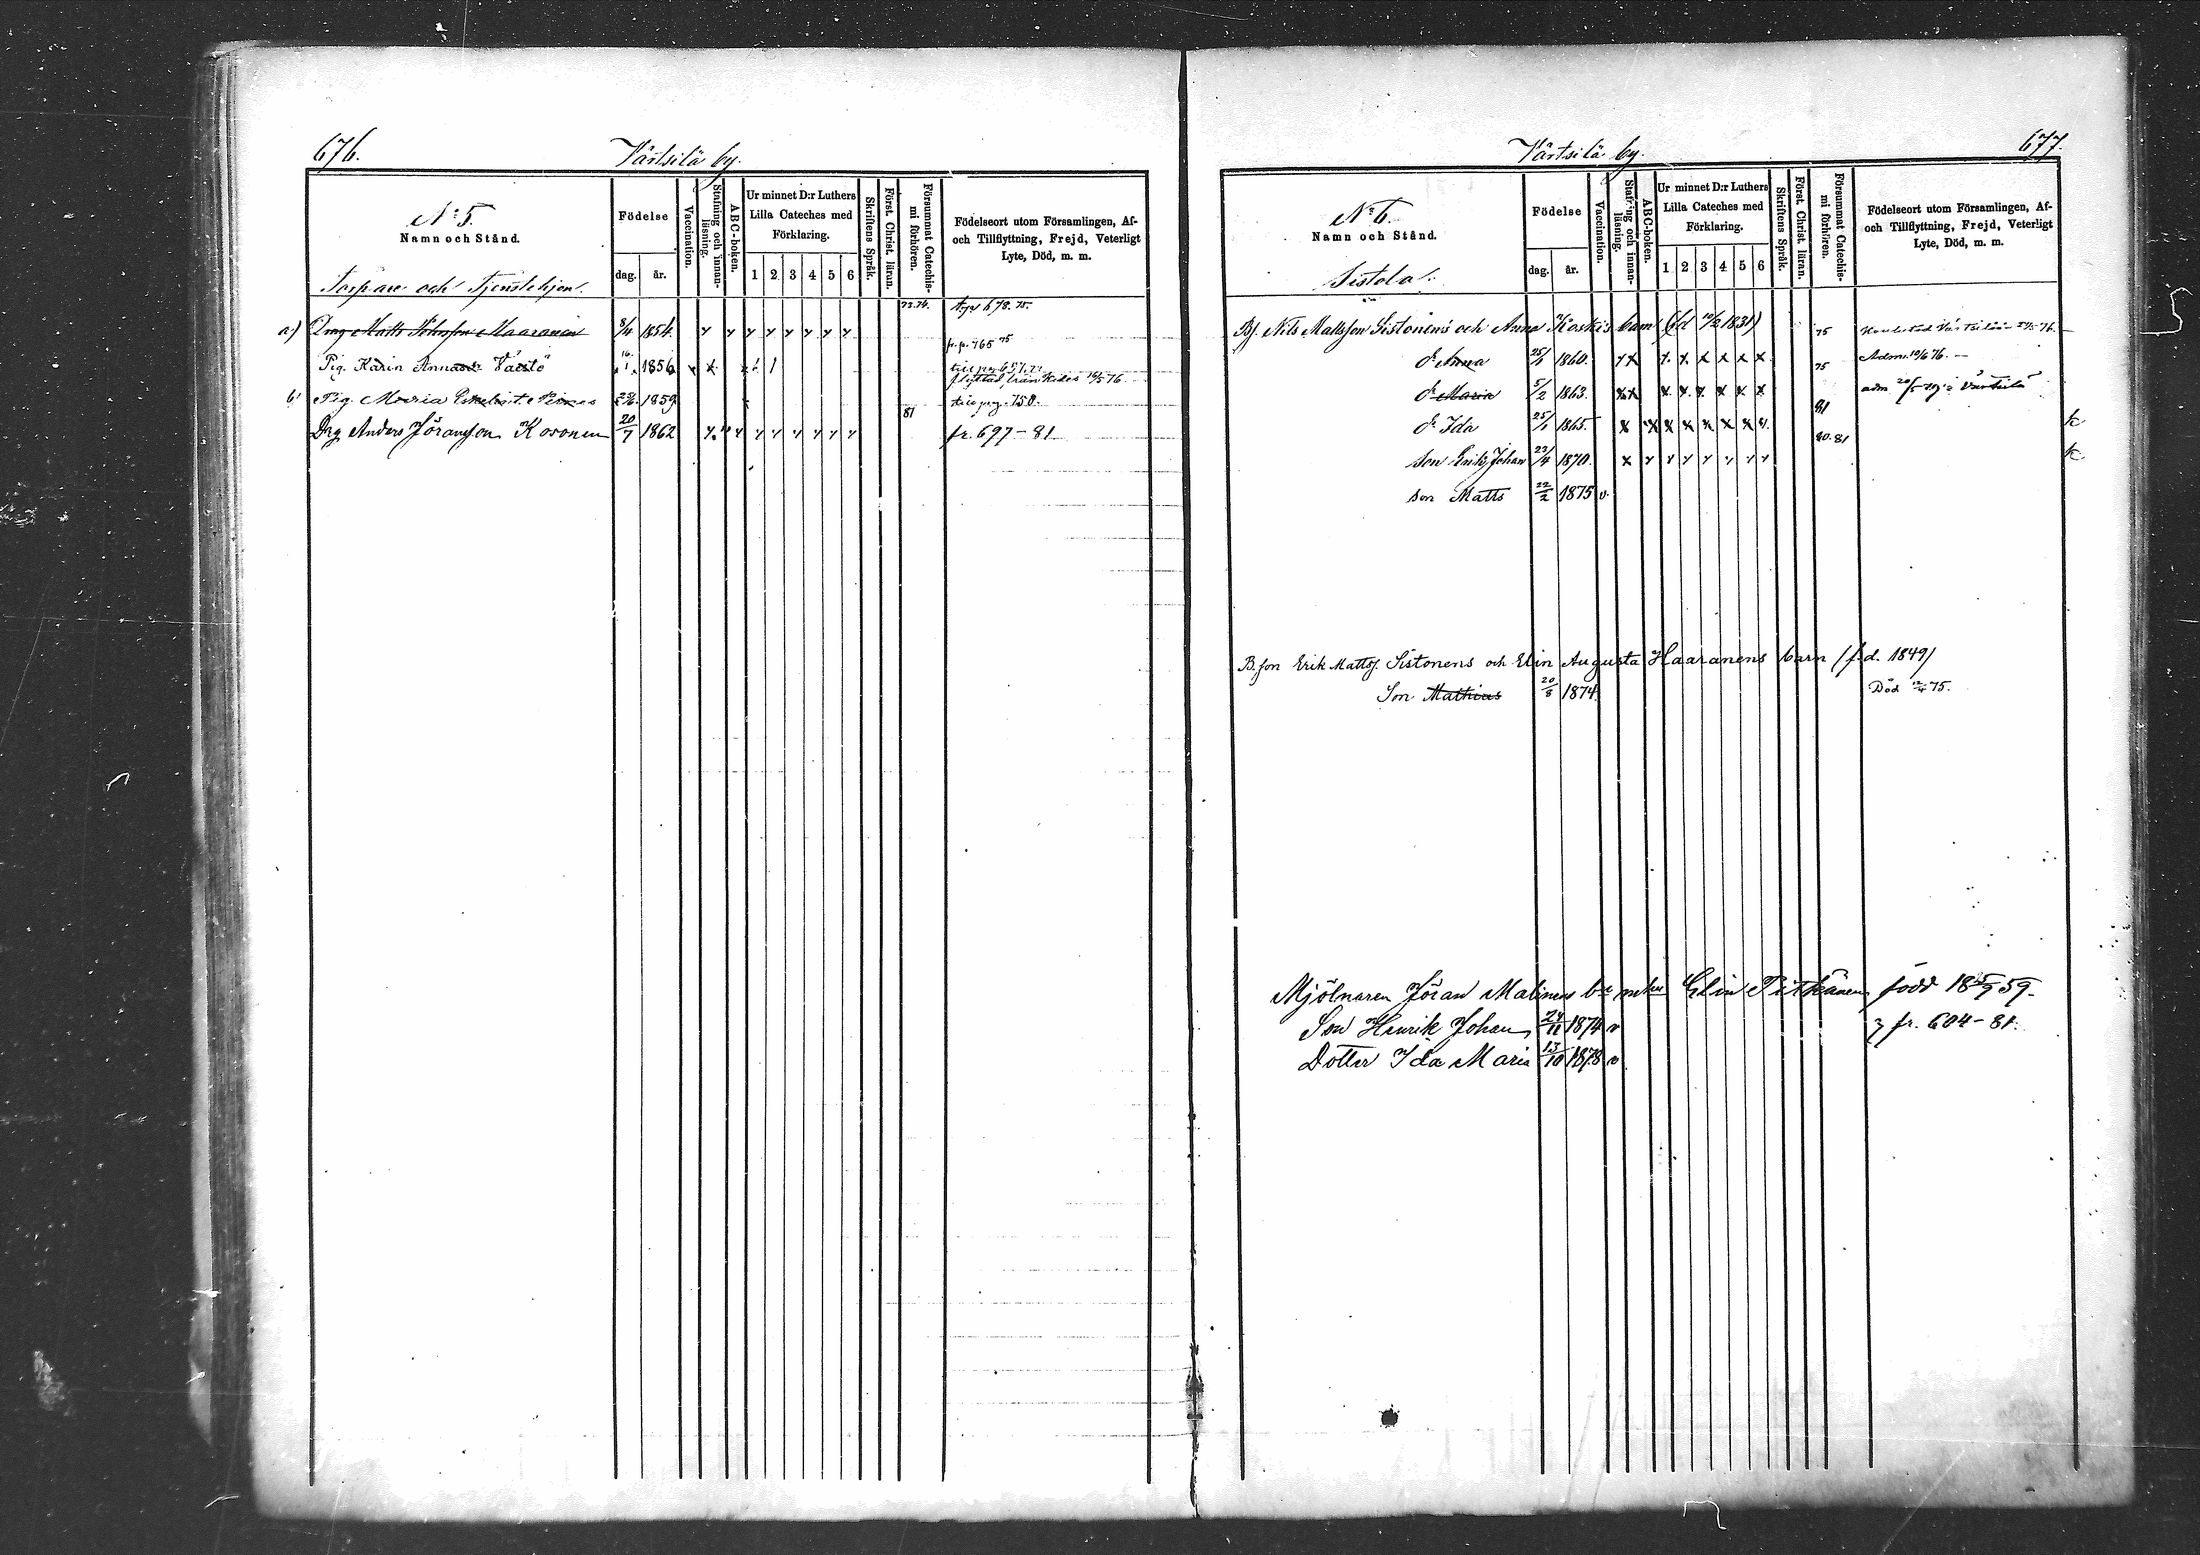 676.
Värtsilä by.
N:o 5.
Namn och Stånd.
Födelse
dag. år.
Vaccination.
Stafning och innan-läsning.
ABC-boken.
Ur minnet D:r Luthers
Lilla Cateches med
Förklaring.
1 2 3 4 5 6
Skriftens Språk.
Först. Christ. läran.
Försummat Catechis-mi förhören.
Födelseort utom Församlingen, Af-
och Tillflyttning, Frejd, Veterligt
Lyte, Död, m. m.
Torpare och Tjenstehjon.
73.74. 678. 75.
a) Drng Matts Maaranen 8/4 1854
fr. p. 765 75
Pig. Karin Väistö 1856
flyttad från Kides 16/5 76.
b) Pig. Maria 1859 till pag. 750.
81
Drg Anders Jöransson Kosonen 20/7 1862 fr. 697-81
677.
Värtsilä by.
N:o 6.
Namn och Stånd.
Födelse
dag. år.
Vaccination.
Stafning och innan-läsning.
ABC-boken.
Ur minnet D:r Luthers
Lilla Cateches med
Förklaring.
1 2 3 4 5 6
Skriftens Språk.
Först. Christ. läran.
Försummat Catechis-mi förhören.
Födelseort utom Församlingen, Af-
och Tillflyttning, Frejd, Veterligt
Lyte, Död, m. m.
Sistola.
Bj. Nils Mattsson Sistonens och Anna Koskis barn (fd 1831) 75
dr Anna 25/1 1860. 75 Adm. 10/6 76.
dr Maria 5/2 1863. adm Värtsilä
dr Ida 25/1 1865 81
son Erik Johan 23/4 1870. 80.81
son Matts 22/2 1875 v.
B.son Erik Matts. Sistonens och Elin Augusta Haaranens barn (f.d. 1849)
Son Mathias 20/8 1874 Död 12/4 75.
Mjölnaren Jöran Malinens Elin Pitkänen född 18 5/9 59.
Son Henrik Johan 24/11 1874 v fr. 604-81.
Dotter Ida Maria 13/10 1878 v